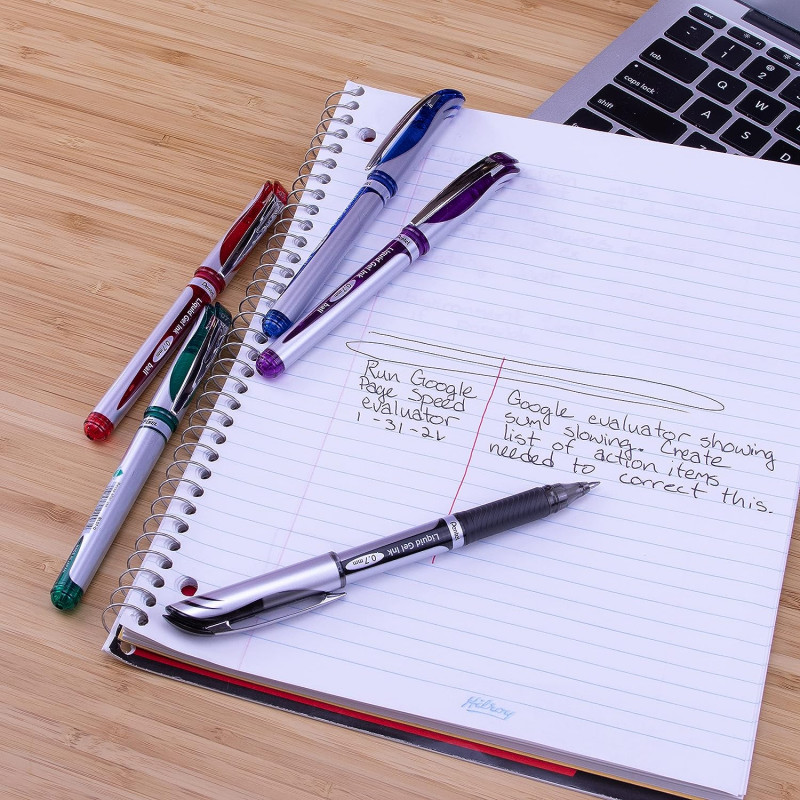 esc
tab
Q
W
caps lock
A
S
D
shift
Liquid Gel Ink
ball
Pentel
Liquid Gel Ink
ball
Run Google
Page Speed
evaluator
Google evaluator showing
sum slowing. Create
list of action items
needed to correct this.
Pentel
0.7mm
Liquid Gel Ink
Hilroy